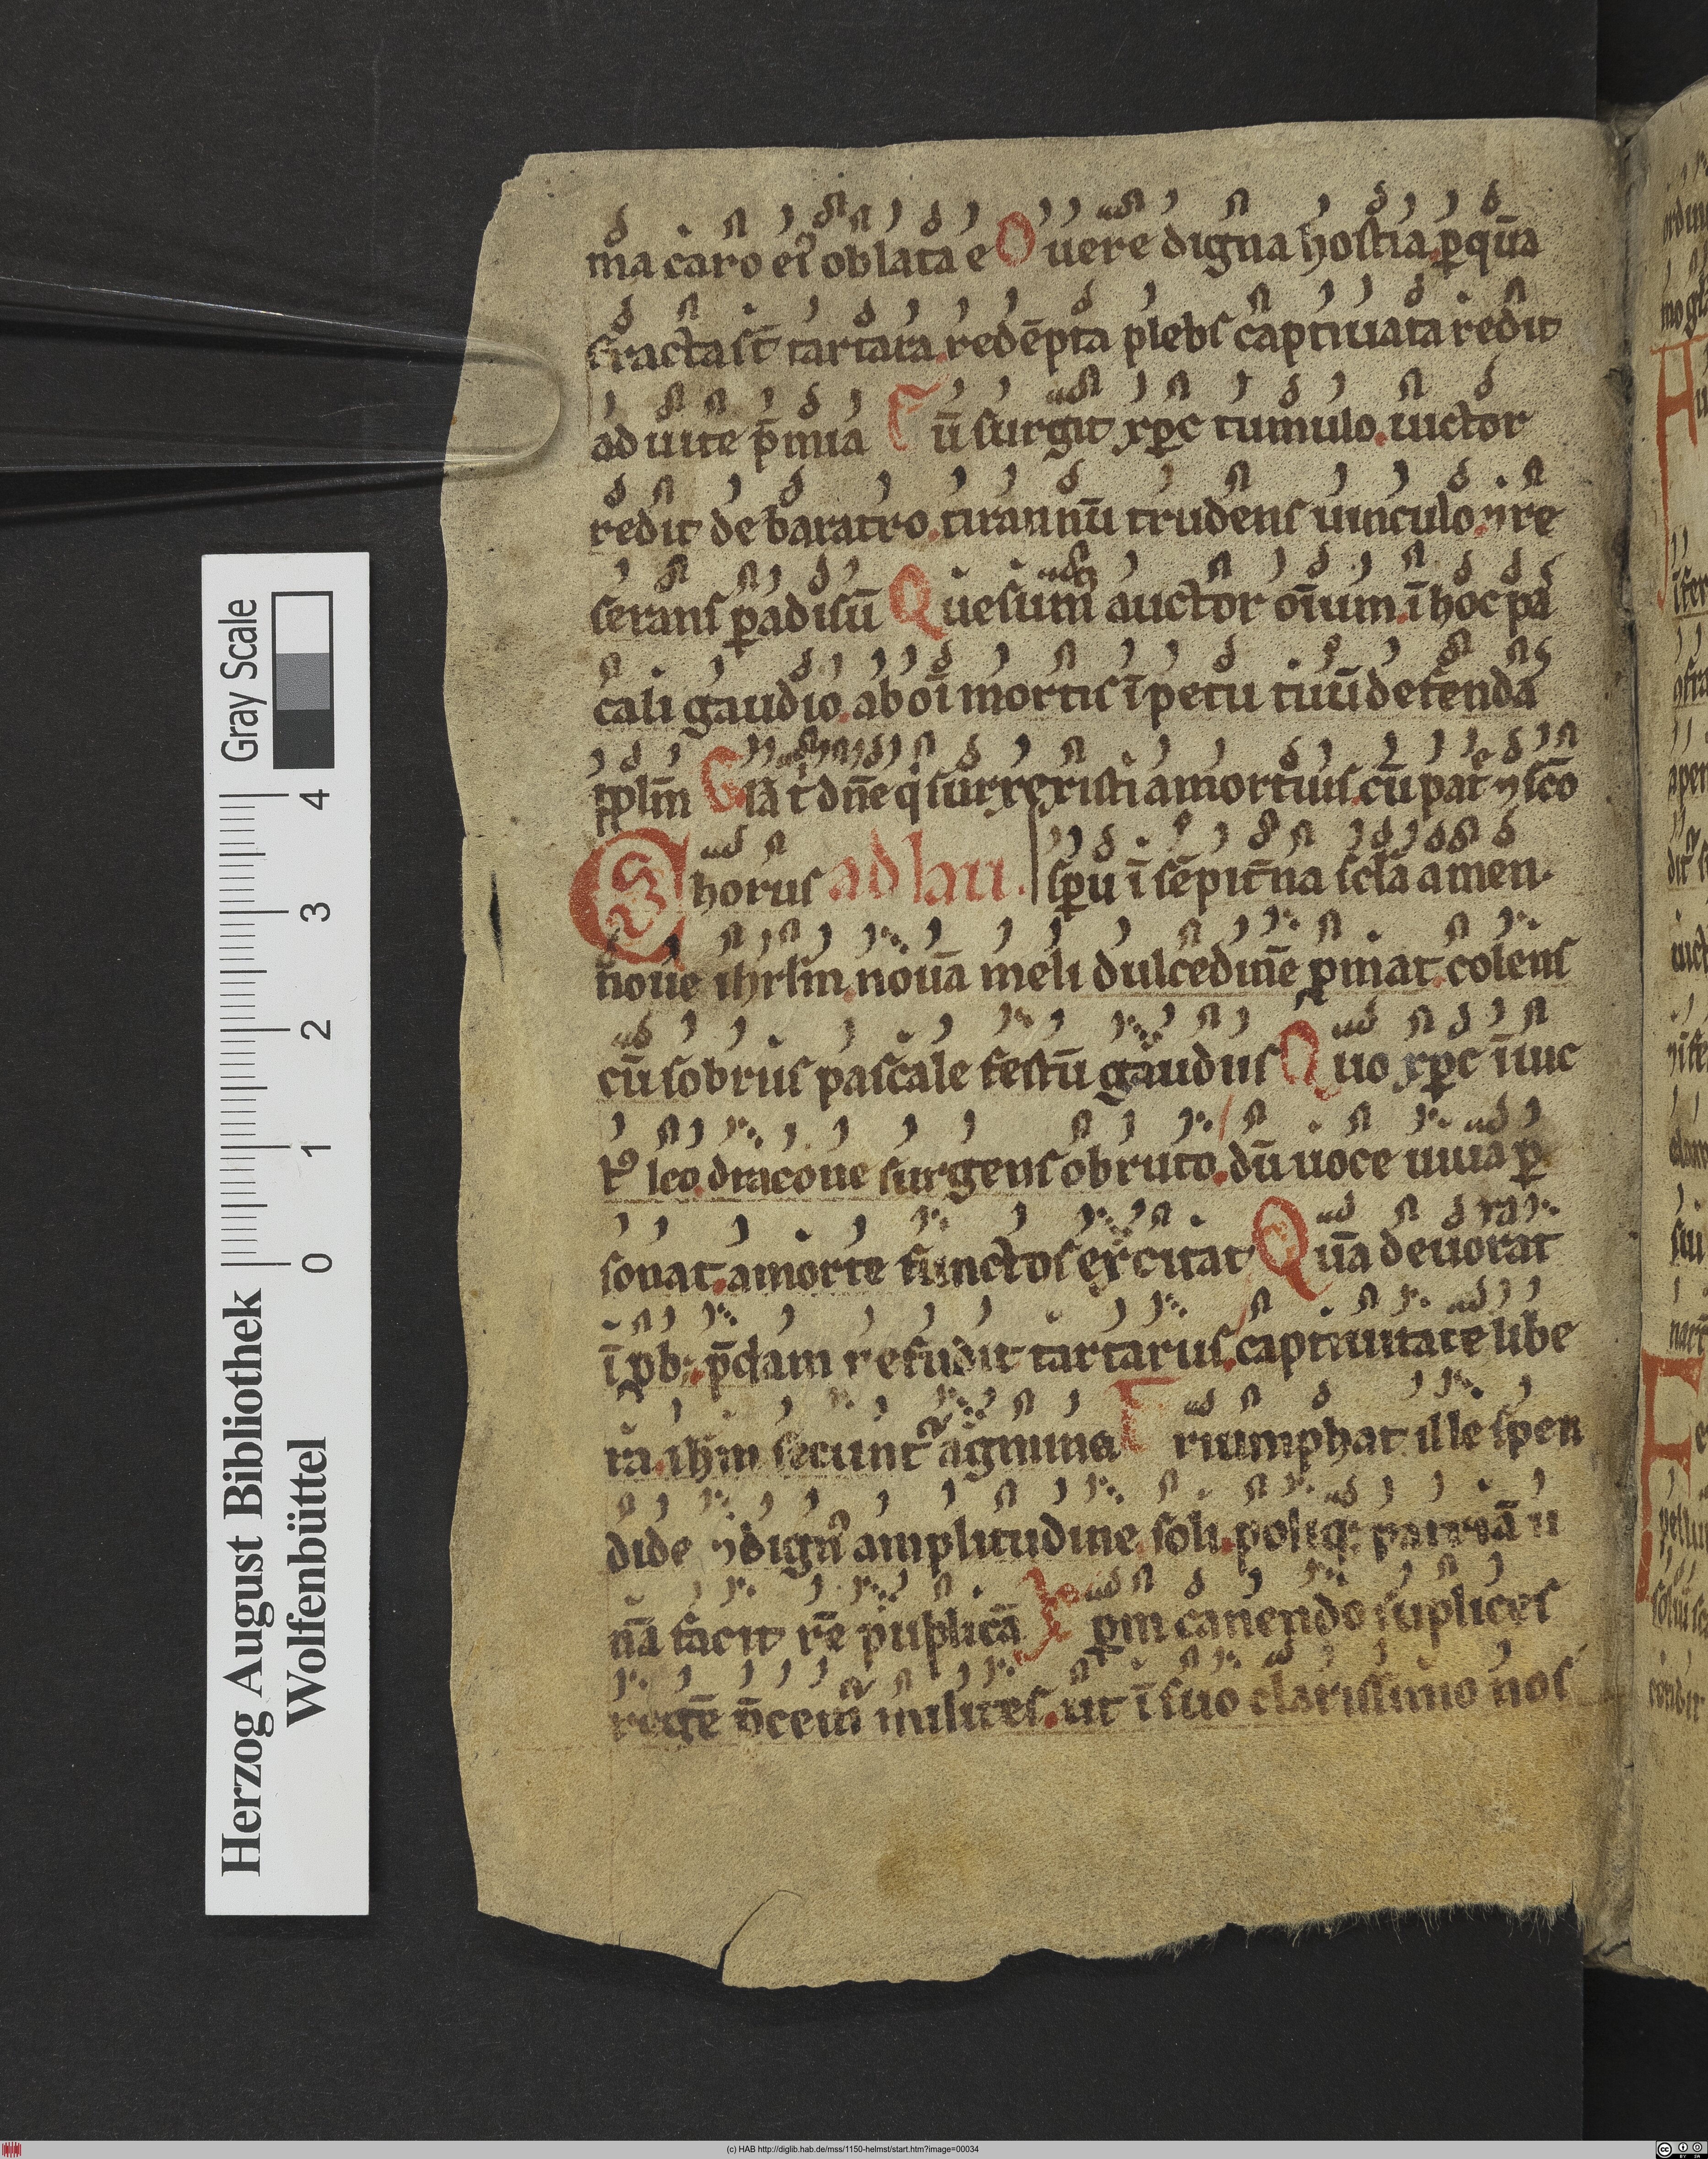 ma caro eiꝰ oblata e O uere digna hostia ꝑ quā
fracta st̄ tartara redēpta plebs captiuata redit
ad uite p̄mia C ū surgit xp̄c tumulo uictor
redit de baratro tirannū trudens uinculo ⁊ re
serans ꝑadisū Q uesum̄ auctor oīum ī hoc pa
scali gaudio ab oī mortis īpetu tuū defenda
pplm̄ G lā t̄ dn̄e q̄ surrexisti a mortuis cū patē ⁊ sc̄o
C horus ad lau. sp̄u ī sēpit̄na scla amen.
noue ihrlm nouā meli dulcedinē ꝓmat colens
cū sobriis pascale festū gaudiis Q uo xp̄c īuic
tꝰ leo dracone surgens obruto dū uoce uiua ꝑ
sonat a morte functos excitat Q uā deuorat
īꝓbꝰ p̄dam refudit tartarus captiuitate libe
ra ihm̄ secunt᷑ agmina T riumphat ille splen
dide ⁊ dignꝰ amplitudine soli poliqꝫ patriā u
nā facit rē puplicā I pm canendo suplices
regē p̄cem᷑ milites ut ī suo clarissimo nos
Herzog August Bibliothek
Wolfenbüttel
0 1 2 3 4
Gray Scale
(c) HAB http://diglib.hab.de/mss/1150-helmst/start.htm?image=00034